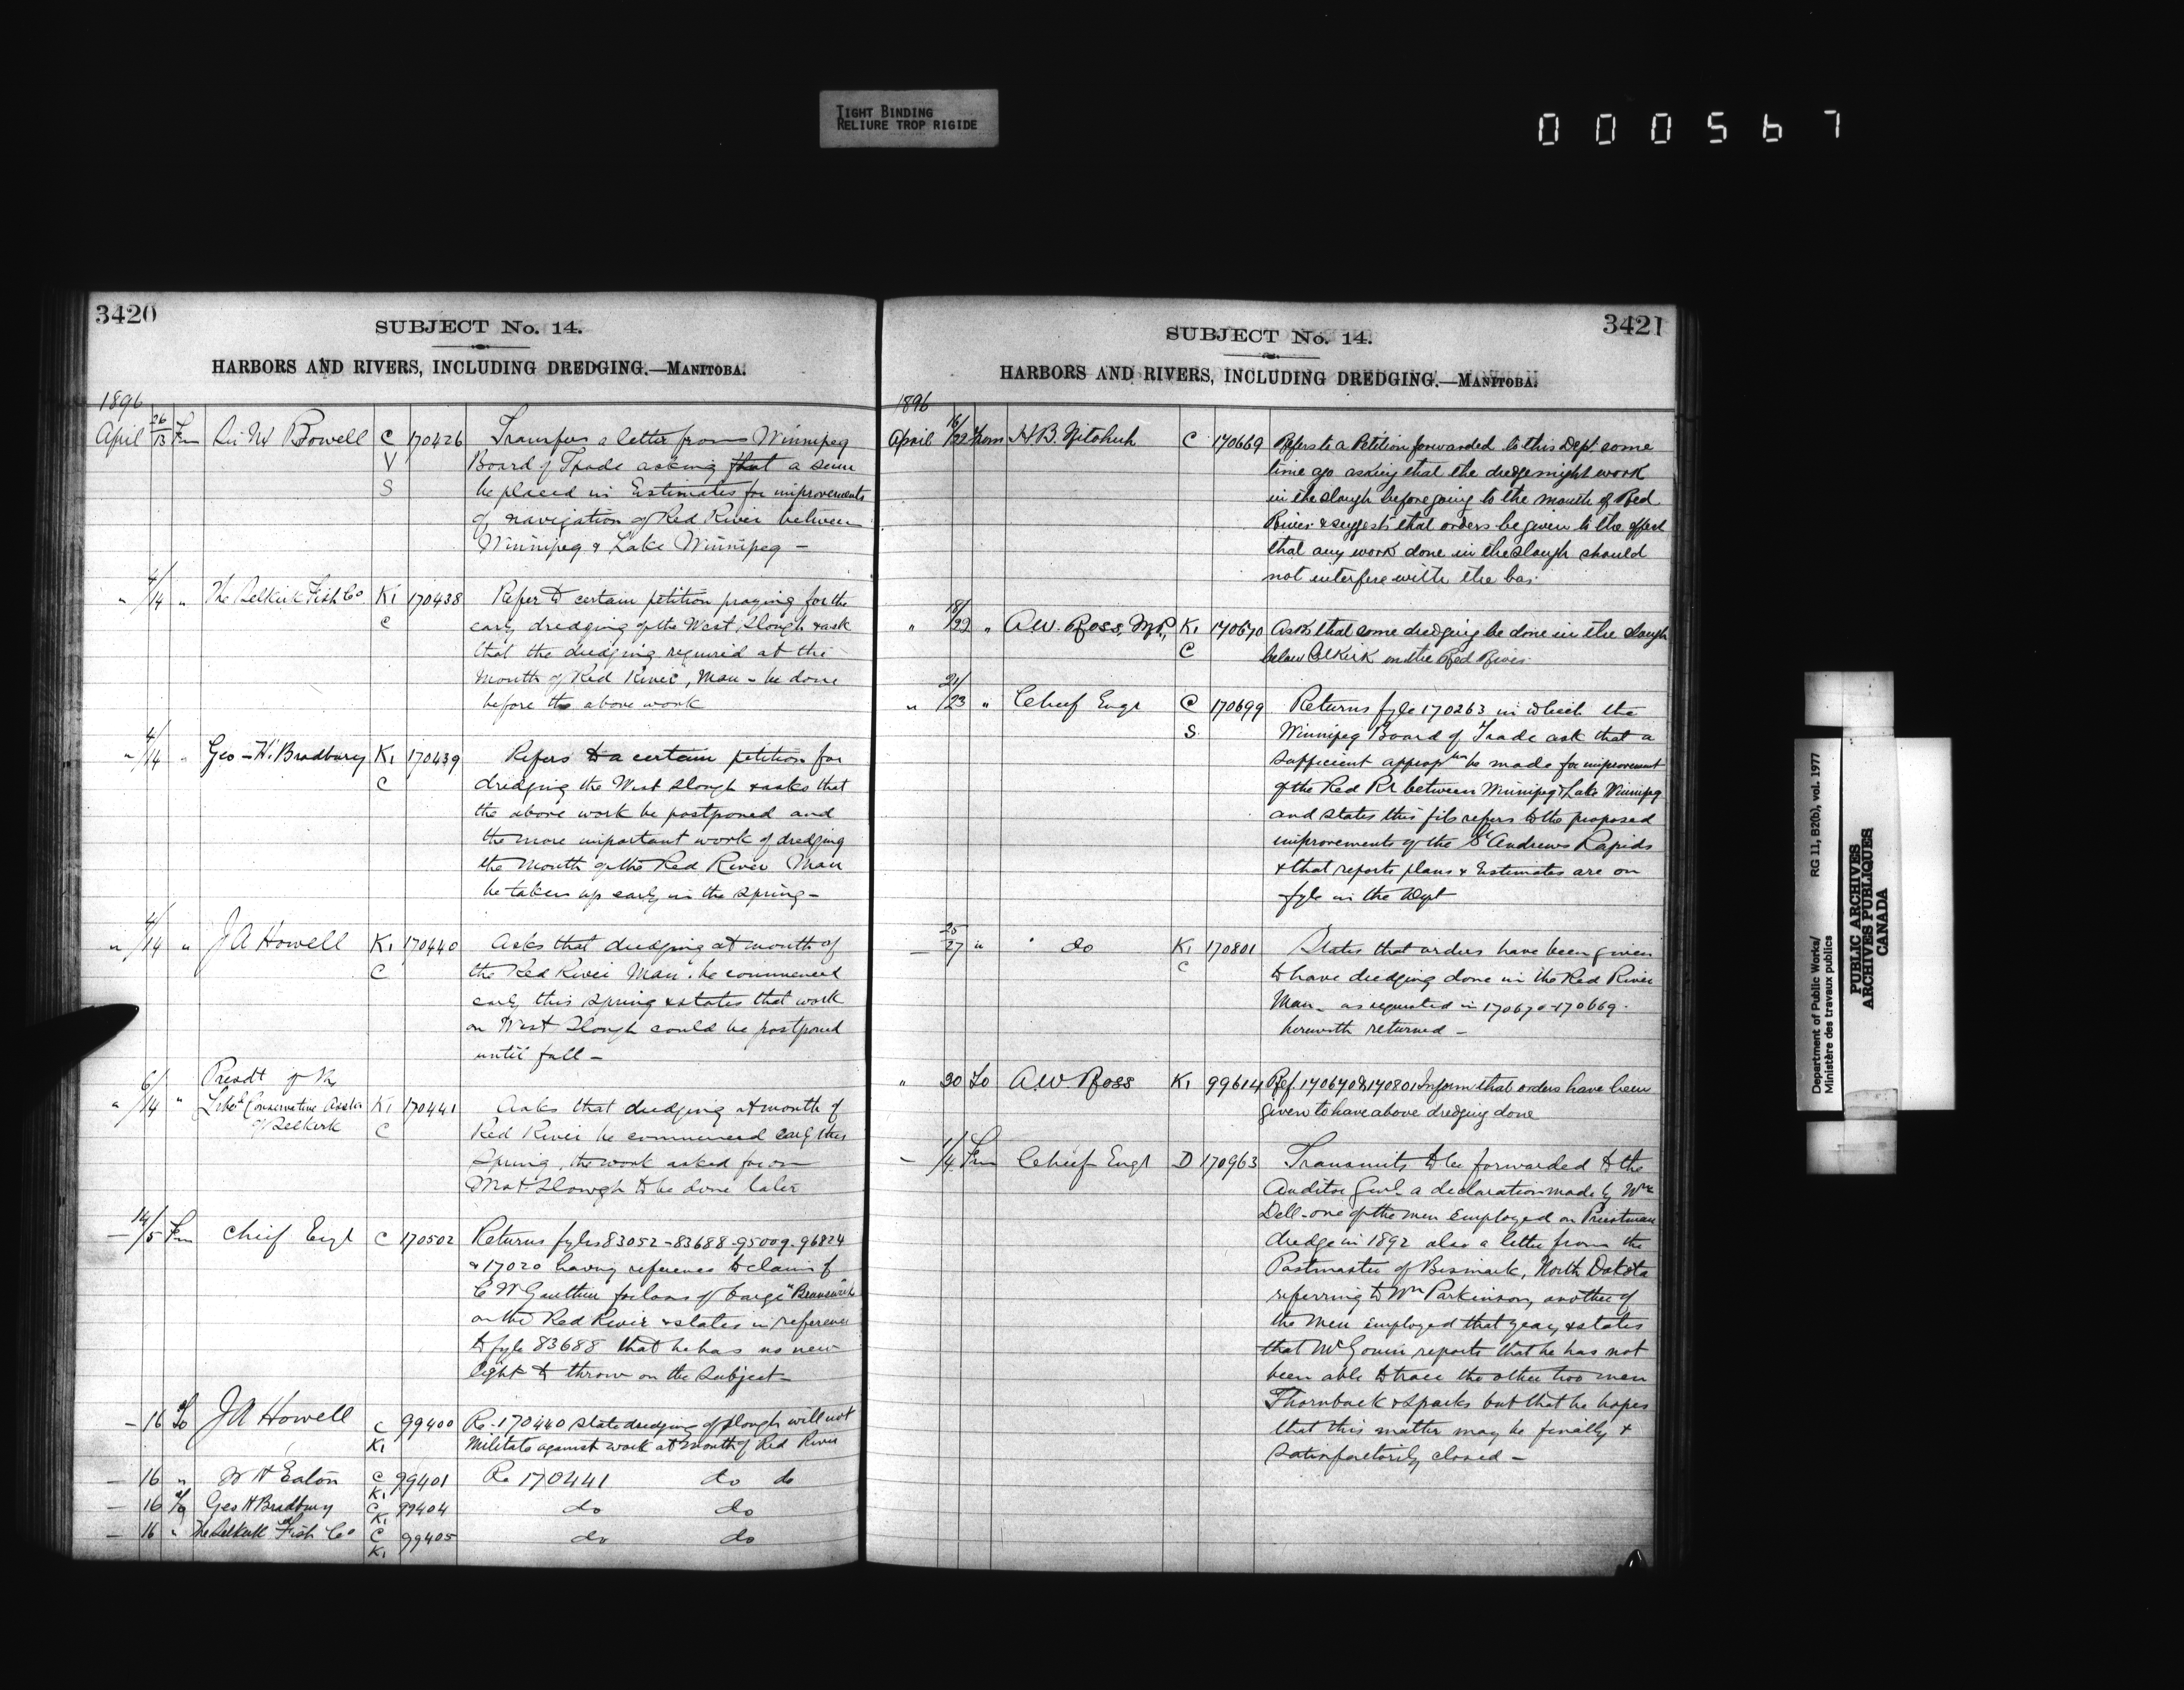 TIGHT BINDING
RELIURE TROP RIGIDE
000567
3420
SUBJECT No. 14.
HARBORS AND RIVERS, INCLUDING DREDGING.—MANITOBA.
1896
April 26/13 Fm Sir M Bowell C 170426 Transfers a letter from Winnipeg
V Board of Trade asking that a sum
S be placed in Estimates for improvements
of navigation of Red River between
Winnipeg & Lake Winnipeg —
" 4/14 " The Selkirk Fish Co K1 170438 Refer to certain petition praying for the
C early dredging of the West Slough & ask
that the dredging required at the
Mouth of Red River, Man - be done
before the above work
" 4/14 " Geo - H. Bradbury K1 170439 Refers to a certain petition for
C dredging the West Slough & asks that
the above work be postponed and
the more important work of dredging
the Mouth of the Red River Man
be taken up early in the Spring —
" 4/14 " J A Howell K1 170440 Asks that dredging at mouth of
C the Red River Man. be commenced
early this Spring & states that work
on West Slough could be postponed
until fall —
Presdt of the
" 6/14 " Liberl Conservative Assoctn K1 170441 Asks that dredging at mouth of
of Selkirk C Red River be commenced early this
Spring, the work asked for on
West Slough to be done later
— 14/15 Fm Chief Engr C 170502 Returns fyles 83052 - 83688 - 95009 - 96824
& 17020 having reference to claim of
C W Gauthier for loan of barge "Brunswick"
on the Red River & states in reference
to fyle 83688 that he has no new
light to throw on the Subject —
— 16 To J A Howell C 99400 Re - 170440 State dredging of slough will not
K1 Militate against work at Mouth of Red River
— 16 " W H Eaton C 99401 Re 170441 do do
K1
— 16 To Geo H Bradbury C 99404 do do
K1
— 16 " The Selkirk Fish Co C 99405 do do
K1
3421
SUBJECT No. 14.
HARBORS AND RIVERS, INCLUDING DREDGING.—MANITOBA.
1896
April 16/22 From H.B. C 170669 Refers to a Petition forwarded to this Dept. some
time ago asking that the dredge might work
in the slough before going to the mouth of Red
River & suggests that orders be given to the effect
that any work done in the slough should
not interfere with the bar.
" 18/22 " A.W. Ross, M.P., K1 170670 Asks that some dredging be done in the slough
C below Selkirk on the Red River.
" 21/23 " Chief Engr C 170699 Returns fyle 170263 in which the
S Winnipeg Board of Trade ask that a
sufficient appropton be made for improvement
of the Red Rr between Winnipeg & Lake Winnipeg
and states this file refers to the proposed
improvements of the St Andrews Rapids
& that reports plans & Estimates are on
fyle in the Dept
— 25/27 " do K1 170801 States that orders have been given
C to have dredging done in the Red River
Man — as requested in 170670 - 170669 -
herewith returned —
" 30 To A.W. Ross K1 99614 Ref. 170670 & 170801 Inform that orders have been
given to have above dredging done
— 1/4 Fm Chief Engr D 170963 Transmits to be forwarded to the
Auditor Genl a declaration made by Wm
Dell - one of the men Employed on Priestman
dredge in 1892 also a letter from the
Postmaster of Bismark, North Dakota
referring to Wm Parkinson, another of
the Men employed that year, & states
that Mr Gouin reports that he has not
been able to trace the other two men
Thornback & Sparks but that he hopes
that this matter may be finally &
Satisfactorily closed —
Department of Public Works/ RG 11, B2(b), vol. 1977
Ministère des travaux publics
PUBLIC ARCHIVES
ARCHIVES PUBLIQUES
CANADA